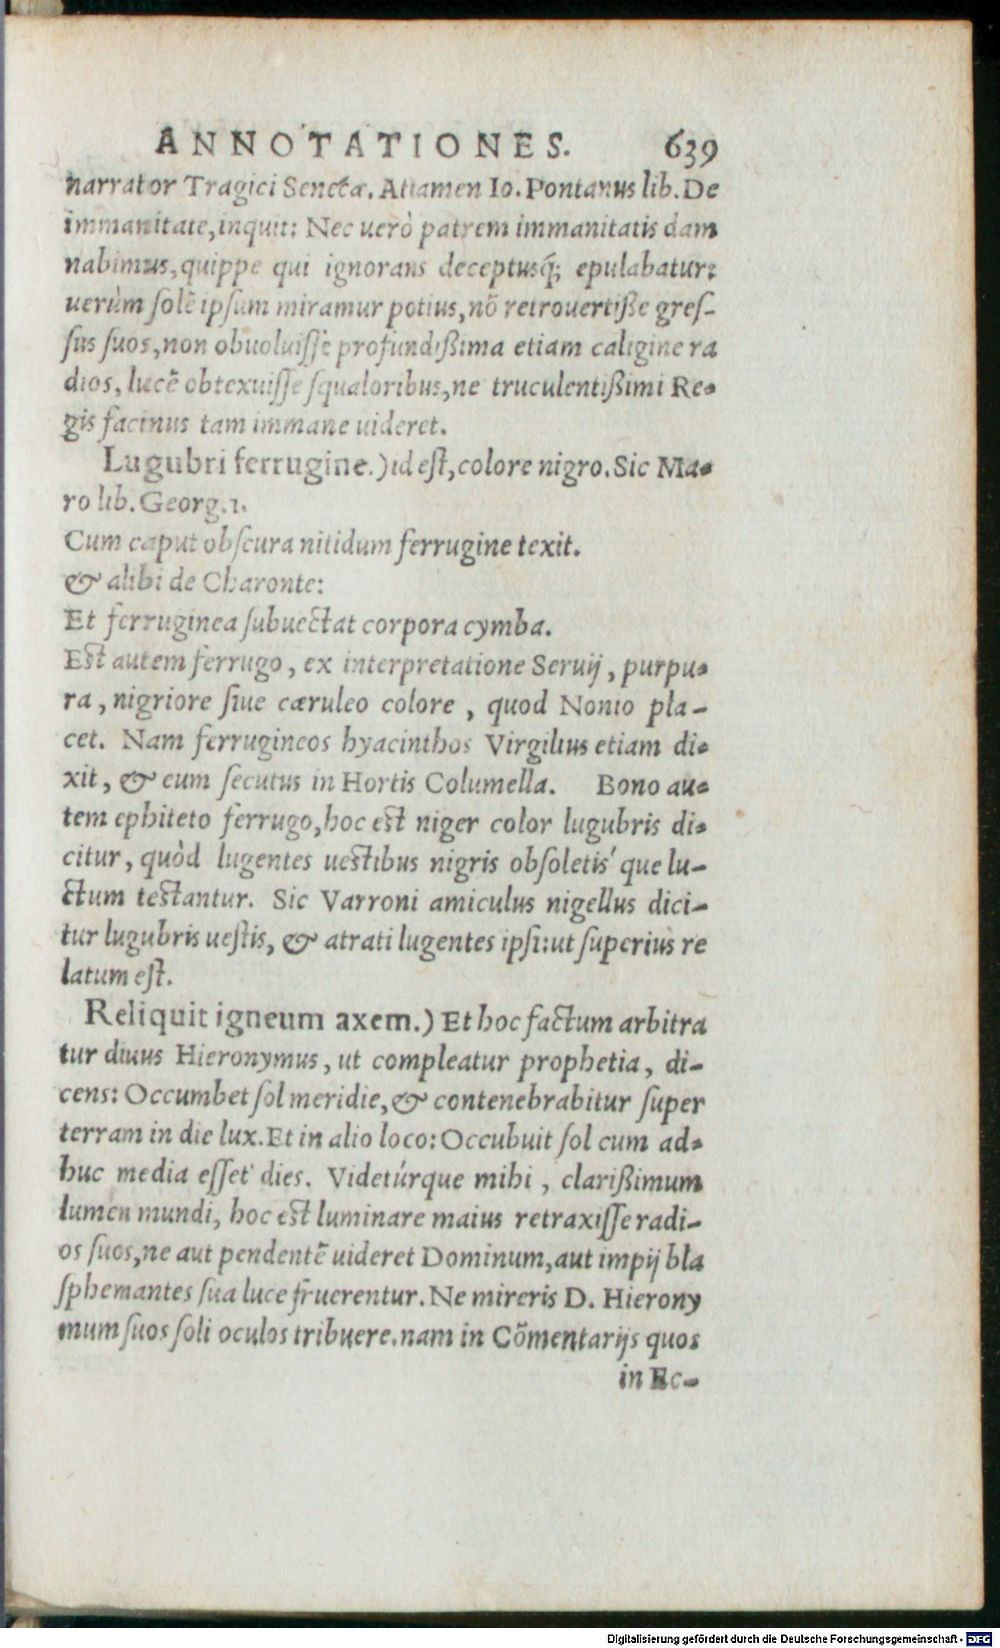 ANNOTATIONES. 639
narrator Tragici Senecæ. Attamen Io. Pontanus lib. De
immanitate, inquit: Nec uerò patrem immanitatis dam
nabimus, quippe qui ignorans deceptusq́; epulabatur:
uerùm solẽ ipsum miramur potius, nõ retrouertiße gres-
sus suos, non obuoluisse profundißima etiam caligine ra
dios, lucẽ obtexuisse squaloribus, ne truculentißimi Re-
gis facinus tam immane uideret.
Lugubri ferrugine.) id est, colore nigro. Sic Ma-
ro lib. Georg. 1.
Cum caput obscura nitidum ferrugine texit.
& alibi de Charonte:
Et ferruginea subuectat corpora cymba.
Est autem ferrugo, ex interpretatione Seruij, purpu-
ra, nigriore siue cæruleo colore, quod Nonio pla-
cet. Nam ferrugineos hyacinthos Virgilius etiam di-
xit, & eum secutus in Hortis Columella. Bono au-
tem ephiteto ferrugo, hoc est niger color lugubris di-
citur, quòd lugentes uestibus nigris obsoletis'que lu-
ctum testantur. Sic Varroni amiculus nigellus dici-
tur lugubris uestis, & atrati lugentes ipsi: ut superius re
latum est.
Reliquit igneum axem.) Et hoc factum arbitra
tur diuus Hieronymus, ut compleatur prophetia, di-
cens: Occumbet sol meridie, & contenebrabitur super
terram in die lux. Et in alio loco: Occubuit sol cum ad-
huc media esset dies. Videtúrque mihi, clarißimum
lumen mundi, hoc est luminare maius retraxisse radi-
os suos, ne aut pendentẽ uideret Dominum, aut impij bla
sphemantes sua luce fruerentur. Ne mireris D. Hierony
mum suos soli oculos tribuere. nam in Cõmentarijs quos
in Ec-
Digitalisierung gefördert durch die Deutsche Forschungsgemeinschaft - DFG